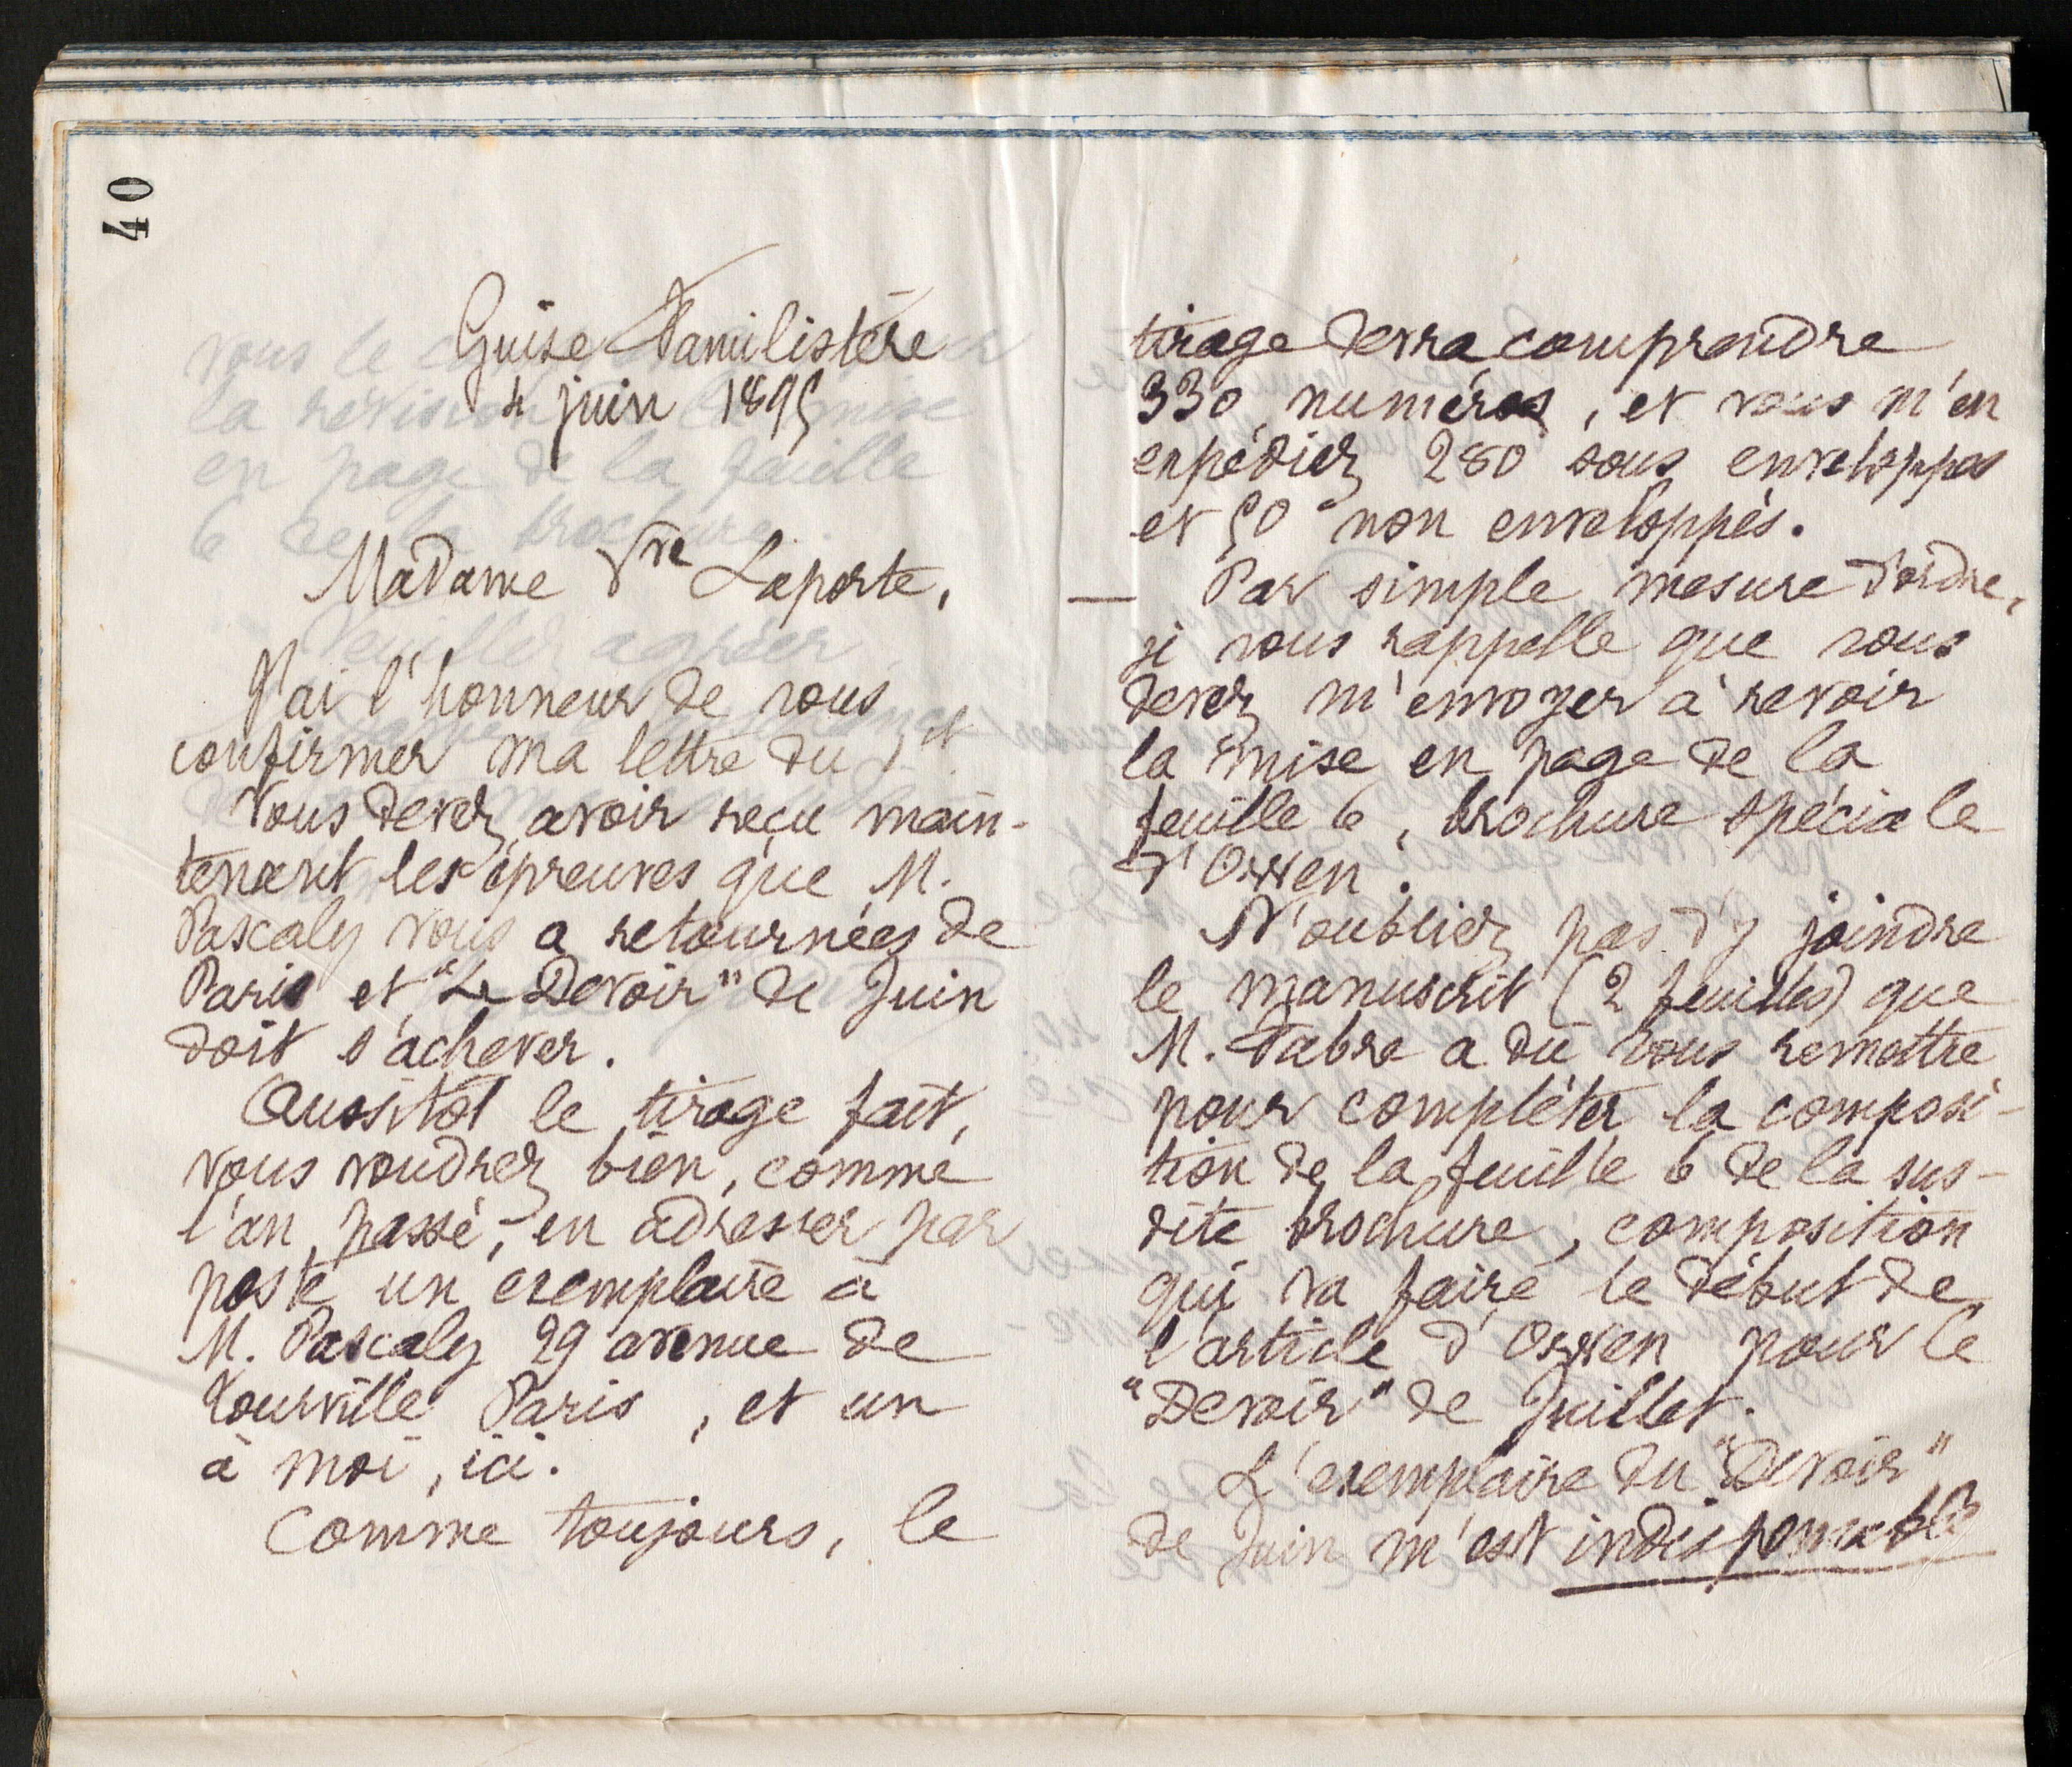 40
Guise Familistère
4 juin 1895
Madame Vve Laporte,
J'ai l'honneur de vous
confirmer ma lettre du 1er.
Vous devez avoir reçu main-
tenant les épreuves que M.
Pascaly vous a retournées de
Paris et "Le Devoir" de Juin
doit s'achever.
Aussitôt le tirage fait,
vous voudrez bien, comme
l'an passé, en adresser par
poste un exemplaire à
M. Pascaly 29 avenue de
Tourville Paris, et un
à moi, ici.
Comme toujours, le
tirage devra comprendre
330 numéros, et vous m'en
expédiez 280 sous enveloppes
et 50 non enveloppés.
— Par simple mesure d'ordre,
je vous rappelle que vous
devez m'envoyer à revoir
la mise en page de la
feuille 6, brochure spéciale
d'Owen.
N'oubliez pas d'y joindre
le manuscrit (2 feuilles) que
M. Fabre a dû vous remettre
pour compléter la composi-
tion de la feuille 6 de la sus-
dite brochure, composition
qui va faire le début de
l'article d'Owen pour le
"Devoir" de Juillet.
L'exemplaire du "Devoir"
de Juin m'est indispensable